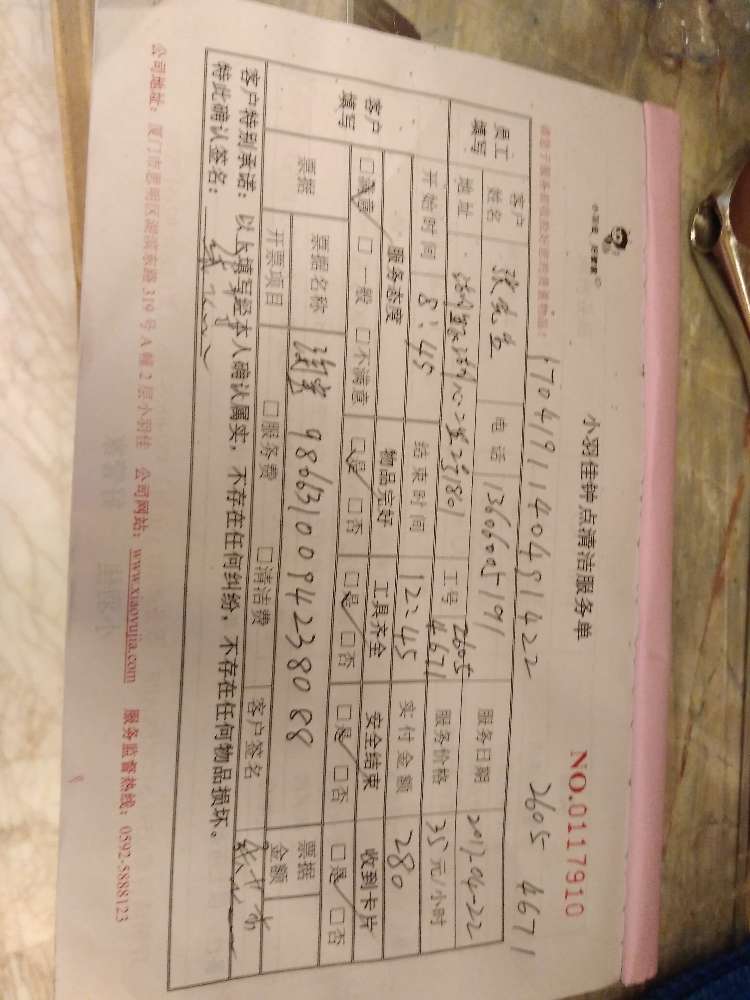 小羽佳钟点清洁服务单
NO.0117910
小羽佳 好管家
1704191140481422
2605 4671
员工填写 客户姓名 张先生 电话 13606005191 服务日期 2017-04-22
地址 工号 2605 4671 服务价格 35元/小时
开始时间 8:45 结束时间 12:45 实付金额 280
客户填写 服务态度 物品完好 工具齐全 安全结束 收到卡片
□满意 □一般 □不满意 □是 □否 □是 □否 □是 □否 □是 □否
票据 票据名称 淘宝 9866310094238088 票据金额
开票项目 □服务费 □清洁费 客户签名
客户特别承诺：以上填写经本人确认属实，不存在任何纠纷，不存在任何物品损坏。
特此确认签名：
公司地址：厦门市思明区湖滨东路319号A幢2层小羽佳 公司网站：www.xiaoyujia.com 服务监督热线：0592-5888123